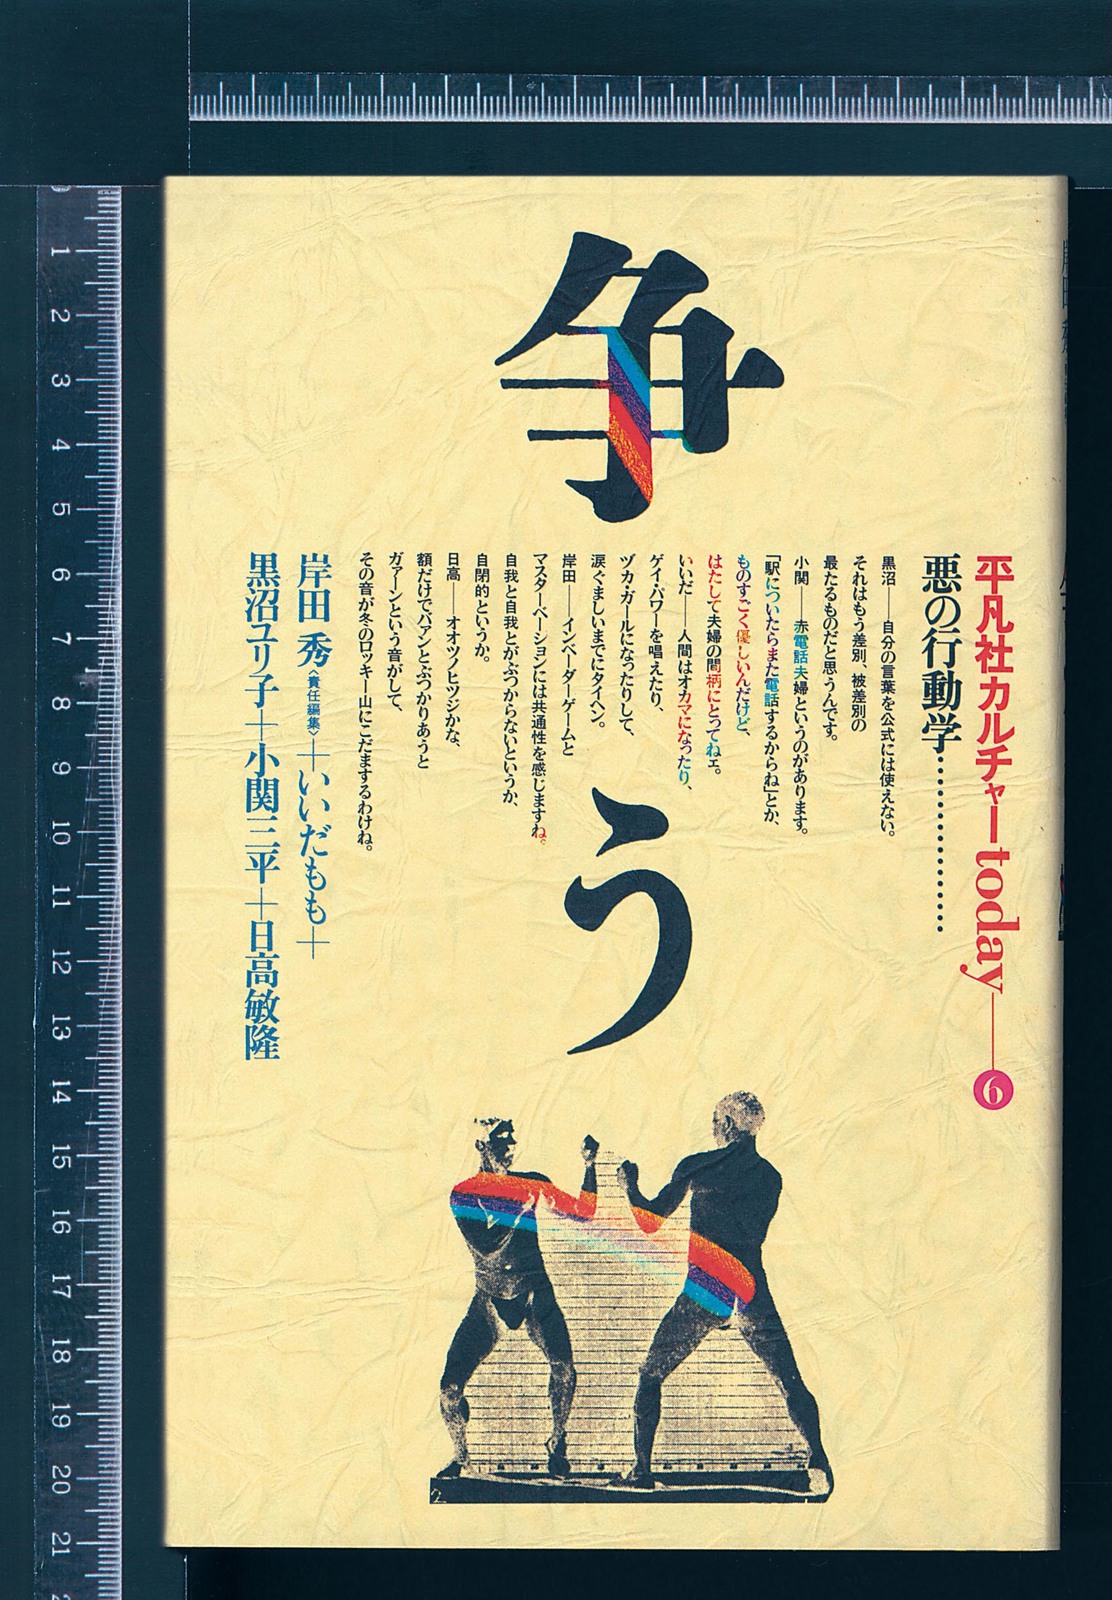 平凡社カルチャーtoday——6
悪の行動学………………
争う
黒沼——自分の言葉を公式には使えない。
それはもう差別、被差別の
最たるものだと思うんです。
小関——赤電話夫婦というのがあります。
「駅についたらまた電話するからね」とか、
ものすごく優しいんだけど、
はたして夫婦の間柄にとってねェ。
いいだ——人間はオカマになったり、
ゲイ・パワーを唱えたり、
ヅカ・ガールになったりして、
涙ぐましいまでにタイヘン。
岸田——インベーダーゲームと
マスターベーションには共通性を感じますね。
自我と自我とがぶつからないというか、
自閉的というか。
日高——オオツノヒツジかな、
額だけでバァンとぶつかりあうと
ガァーンという音がして、
その音が冬のロッキー山にこだまするわけね。
岸田 秀〈責任編集〉＋いいだもも＋
黒沼ユリ子＋小関三平＋日高敏隆
1
2
3
4
5
6
7
8
9
10
11
12
13
14
15
16
17
18
19
20
21